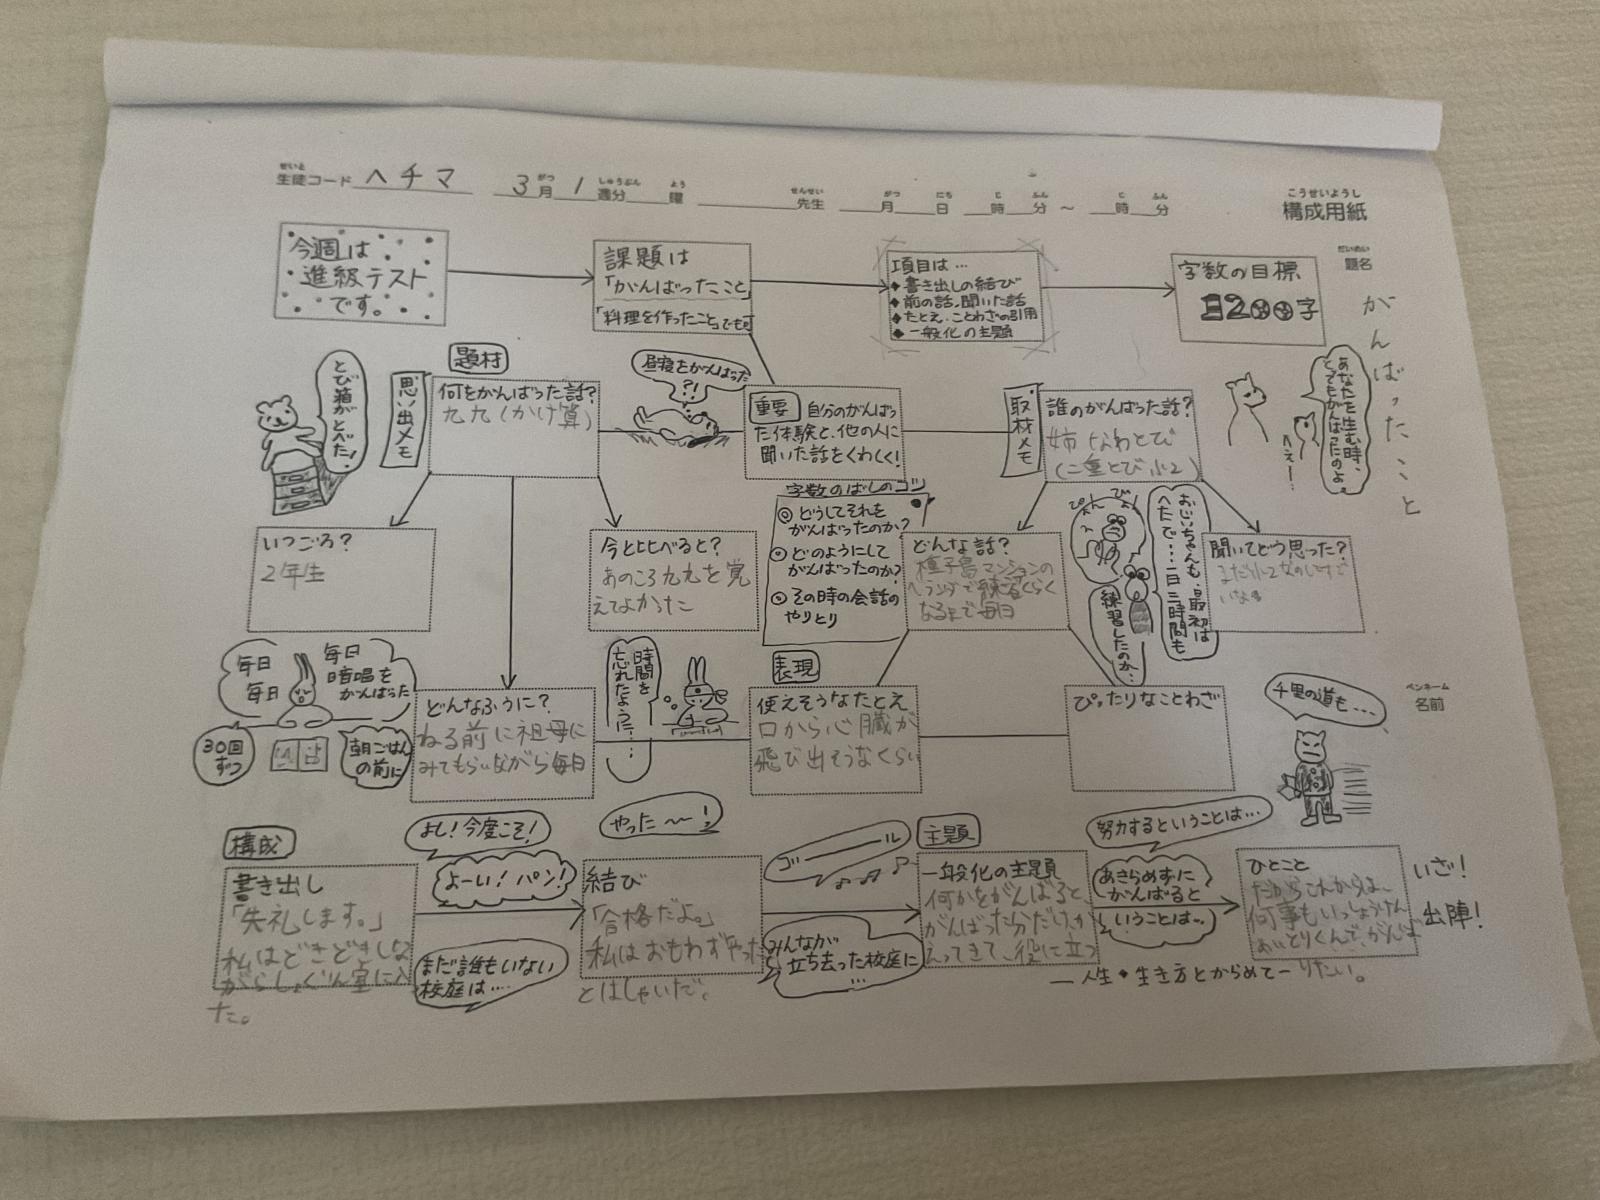 せいと
生徒コード ヘチマ 3月1週分 曜 先生 月 日 時 分 ~ 時 分
がつ しゅうぶん よう せんせい がつ にち じ ふん じ ふん
こうせいようし
構成用紙
だいめい
題名
がんばったこと
ペンネーム
名前
今週は
進級テスト
です。
課題は
「がんばったこと」
「料理を作ったこと」でも可
項目は…
◆書き出しの結び
◆前の話・聞いた話
◆たとえ・ことわざの引用
◆一般化の主題
字数の目標
1200字
とび箱がとべた!
思い出メモ
題材
何をがんばった話?
九九(かけ算)
昼寝をがんばった
?!
重要 自分のがんばっ
た体験と、他の人に
聞いた話をくわしく!
取材メモ
誰のがんばった話?
姉 なわとび
(二重とび 小2)
あなたを生む時、
とてもがんばったのよ。
へぇー…
いつごろ?
2年生
今と比べると?
あのころ九九を覚
えてよかった
字数のばしのコツ
◎どうしてそれを
がんばったのか?
◎どのようにして
がんばったのか?
◎その時の会話の
やりとり
どんな話?
種子島マンションの
ベランダで練習くらく
なるまで毎日
ぴょん
ぴょん
おじいちゃんも、最初は
へたで…一日三時間も
練習したのか…
聞いてどう思った?
毎日
毎日
毎日
暗唱を
がんばった
30回
ずつ
朝ごはん
の前に
どんなふうに?
ねる前に祖母に
みてもらいながら毎日
時間を
忘れたように……
表現
使えそうなたとえ
口から心臓が
飛び出そうなくらい
ぴったりなことわざ
千里の道も…
構成
書き出し
「失礼します。」
私はどきどきしな
がらしょくいん室に入っ
た。
よし!今度こそ!
よーい!パン!
まだ誰もいない
校庭は…
やった〜!
結び
「合格だよ。」
私はおもわずやった
とはしゃいだ。
ゴーール
みんなが
立ち去った校庭に
…
主題
一般化の主題
何かをがんばると、
がんばった分だけ、か
えってきて、役に立つ
努力するということは…
あきらめずに
がんばると
いうことは…
ひとこと
だからこれからは、
何事もいっしょうけん
めいとりくんで、がんば
りたい。
ー人生・生き方とからめてー
いざ!
出陣!